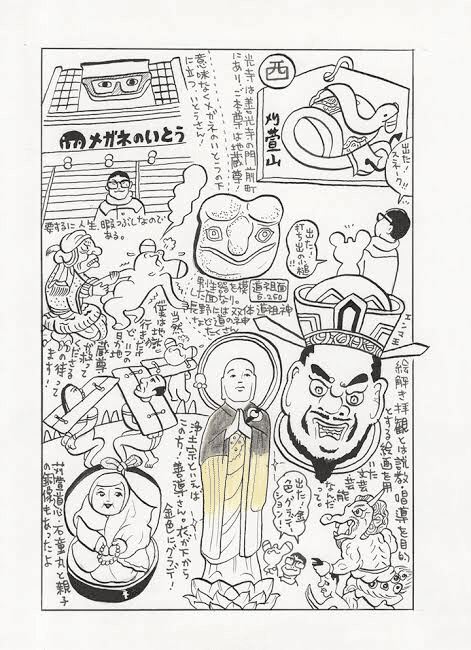 西
刈萱山
出た!
スネーク!!
光寺は善光寺の門前町
にあり、ご本尊は地蔵尊!
意味なくメガネのいとうの下
に立つ、いとうさん!
メガネのいとう
要するに人生、暇つぶしなので
ある。
出た!
打ち出の小槌
!!
男性器を模
した面なり。
道祖面
6.250
長野には双体道祖神
などと道の神
たくさん
エンマ王
当然、
僕は地獄
行き
だが
地
蔵尊
って
ます待!
絵解き拝観とは説教・唱導を目的
とする絵画を用
いた
文芸
芸能
なんだ
って。
浄土宗といえば
この方!善導さん。衣が下から
金色にグラデー!
出た!金
色グラデー
ション!
苅萱道心・石童丸と親子
の銅像もあったよ